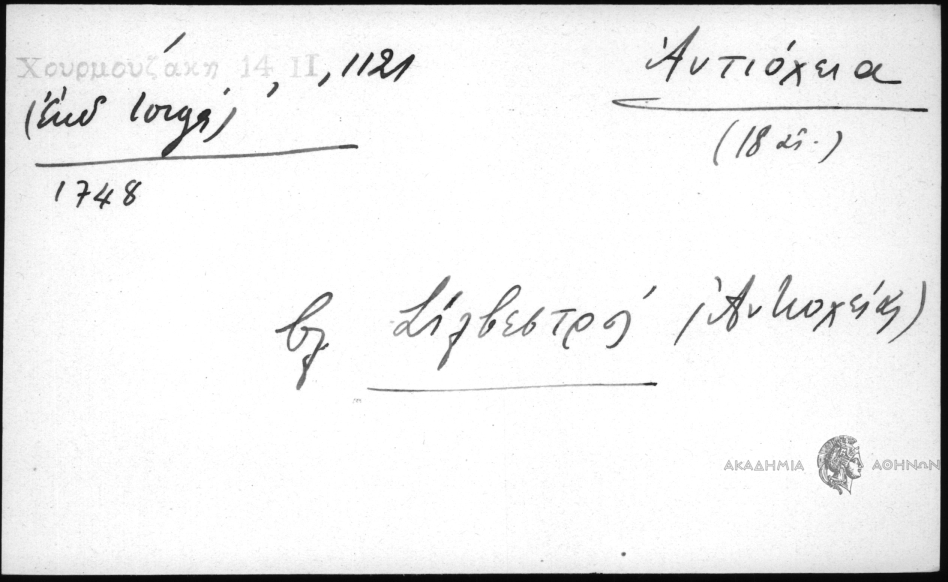 Χουρμουζάκη 14 II, , 1121
(ἔκδ Ἰόργα)
1748
Ἀντιόχεια
(18 αἰ.)
βλ Σίλβεστρος (Ἀντιοχείας)
ΑΚΑΔΗΜΙΑ ΑΘΗΝΩΝ